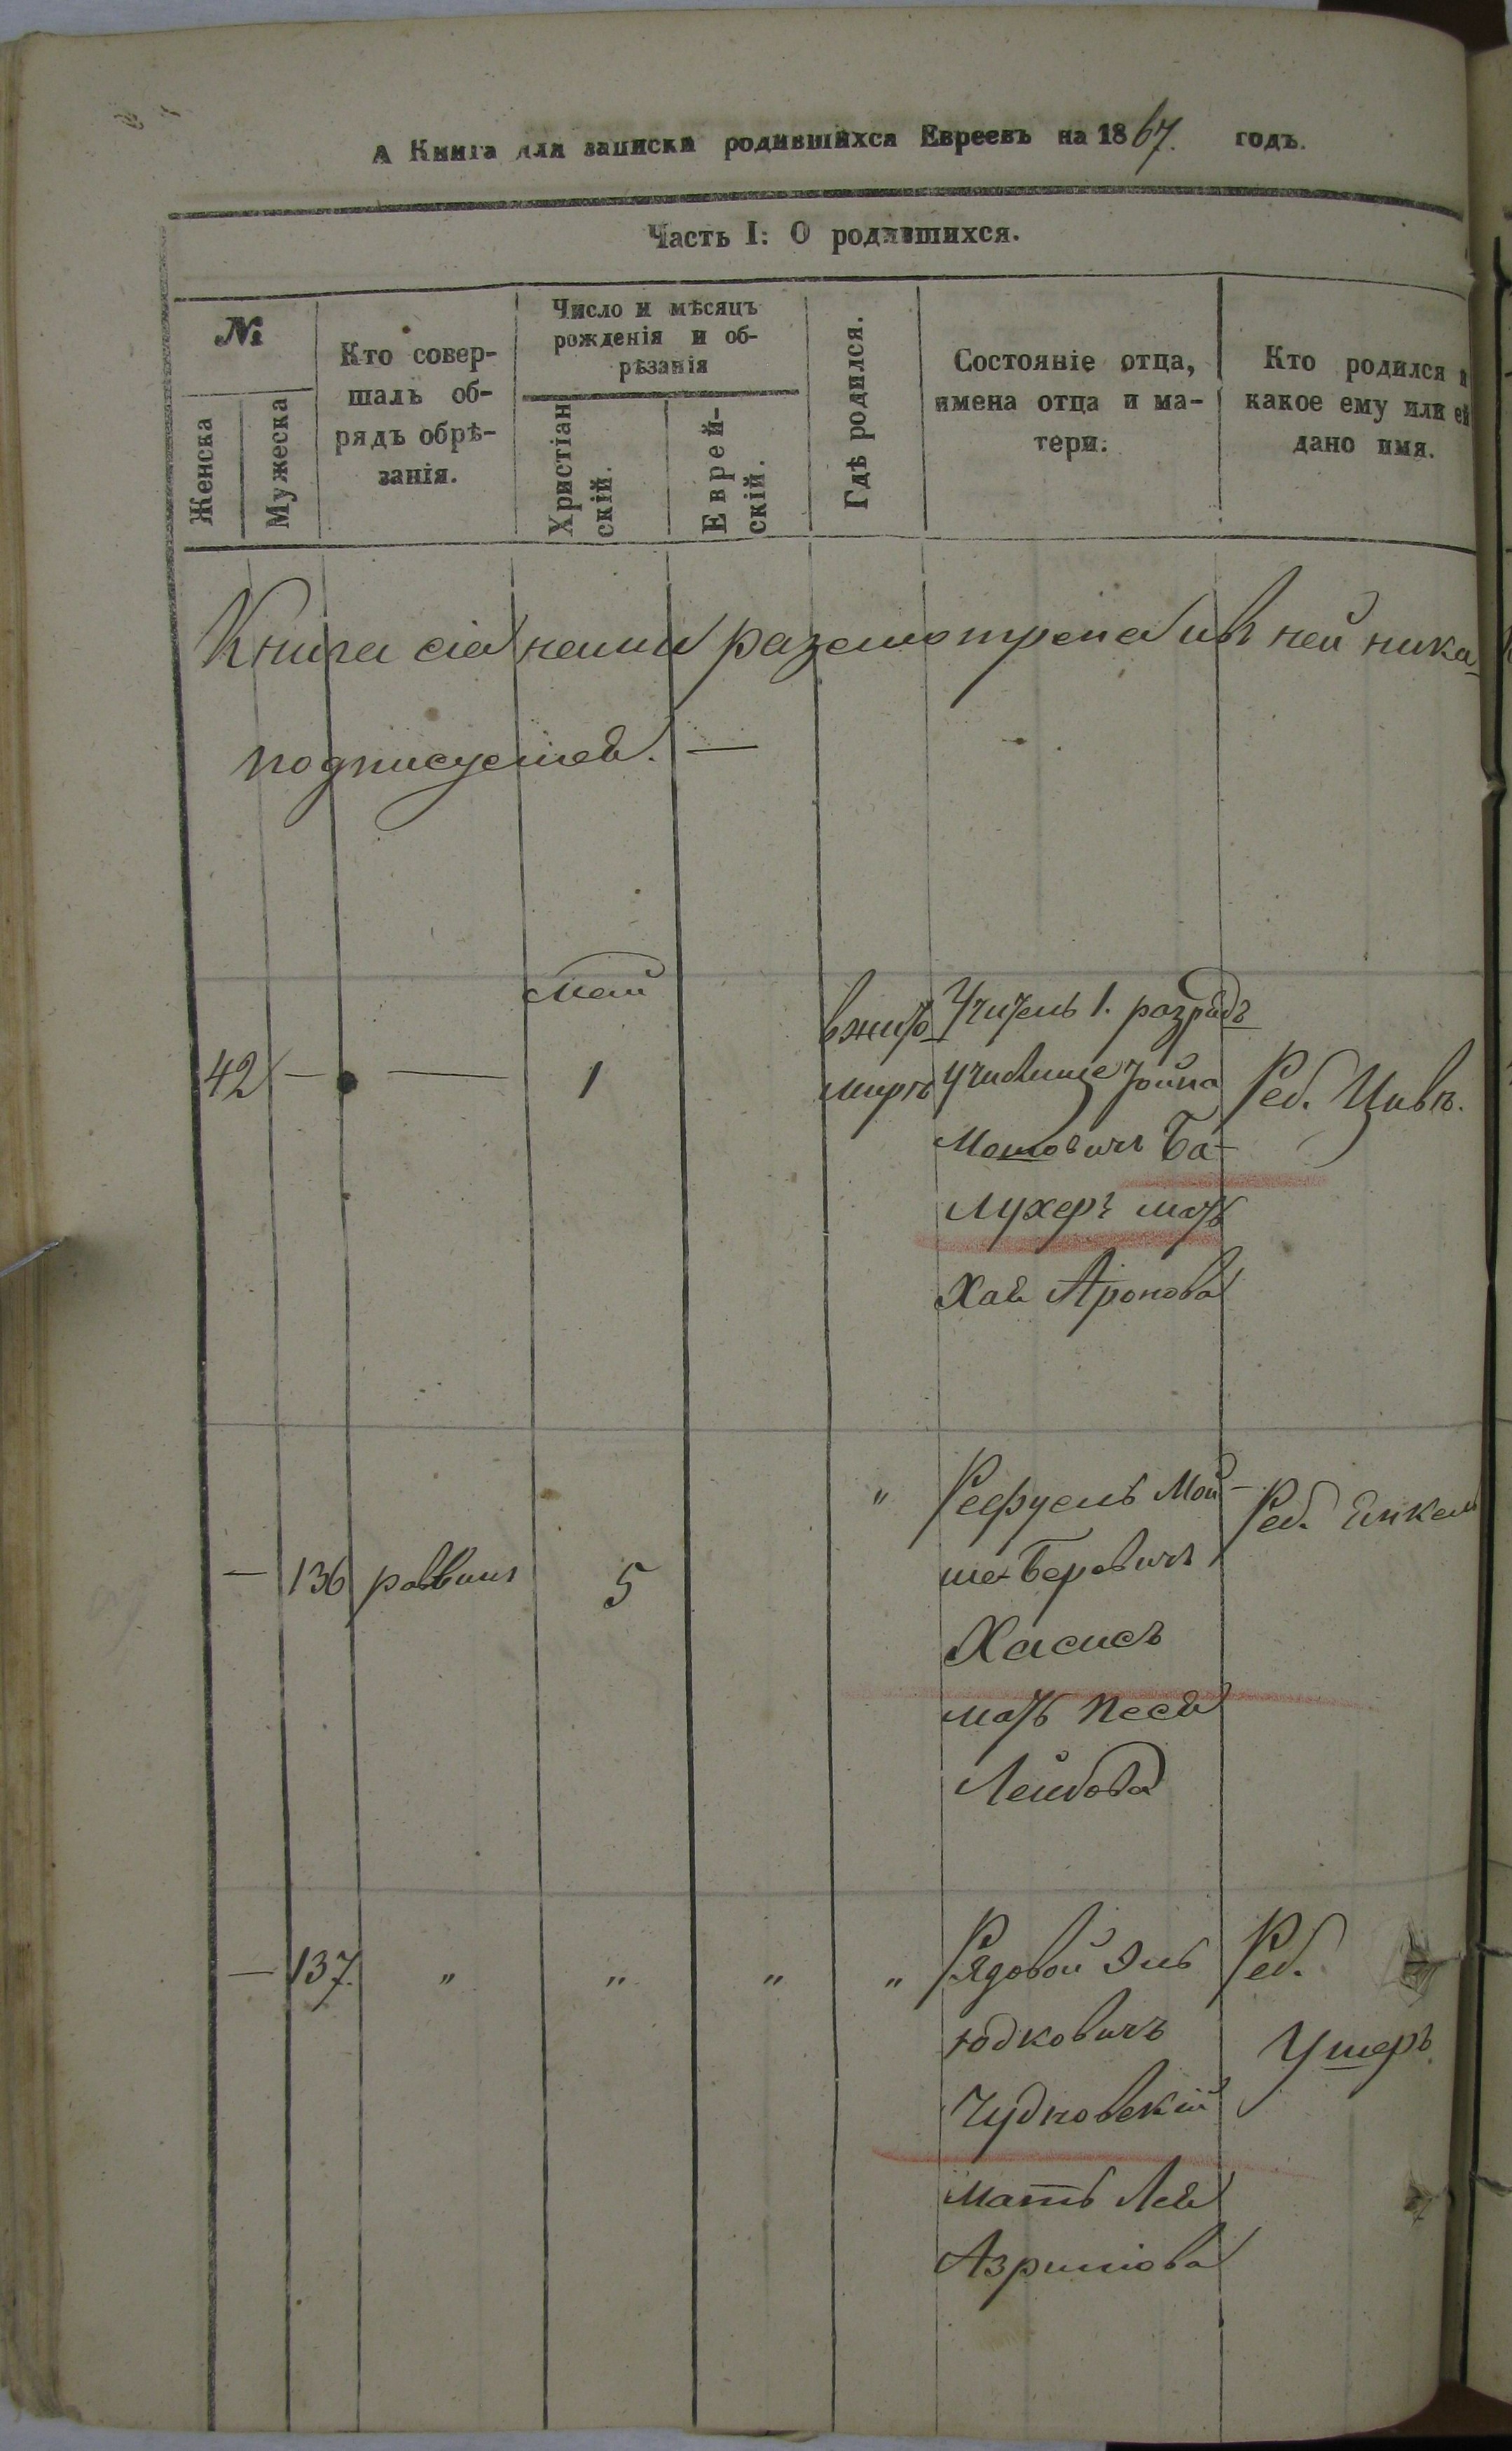 А Книга для записки родившихся Евреевъ на 1867. годъ.
Часть I: О родившихся.
№
Женска
Мужеска
Кто совер-
шалъ об-
рядъ обрѣ-
занія.
Число и мѣсяцъ
рожденія и об-
рѣзанія
Христіан
скій.
Еврей-
скій.
Гдѣ родился.
Состояніе отца,
имена отца и ма-
тери.
Кто родился и
какое ему или ей
дано имя.
Книга сія нами разсмотрена и въ ней ника
подписуемся. —
Май
42 — — 1
вжито
мирѣ
Учитель 1. розрядъ
училище Іойна
Мошовичъ Ба-
лухеръ мать
Хая Аронова
Реб. Цивъ.
— 136 раввинъ 5 "
Рефуель Мой-
ше-Беровичъ
Хасисъ
мать Песя
Лейбова
Реб. Янкель
— 137. " " " "
Рядовой Эль
Юдковичъ
Чудновскій
мать Лея
Азрилова
Реб.
Ушеръ